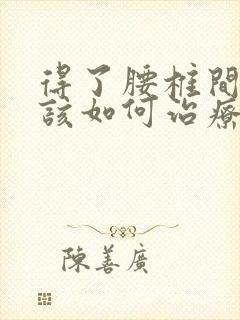 得了腰柱間
該如何治療
陳善廣